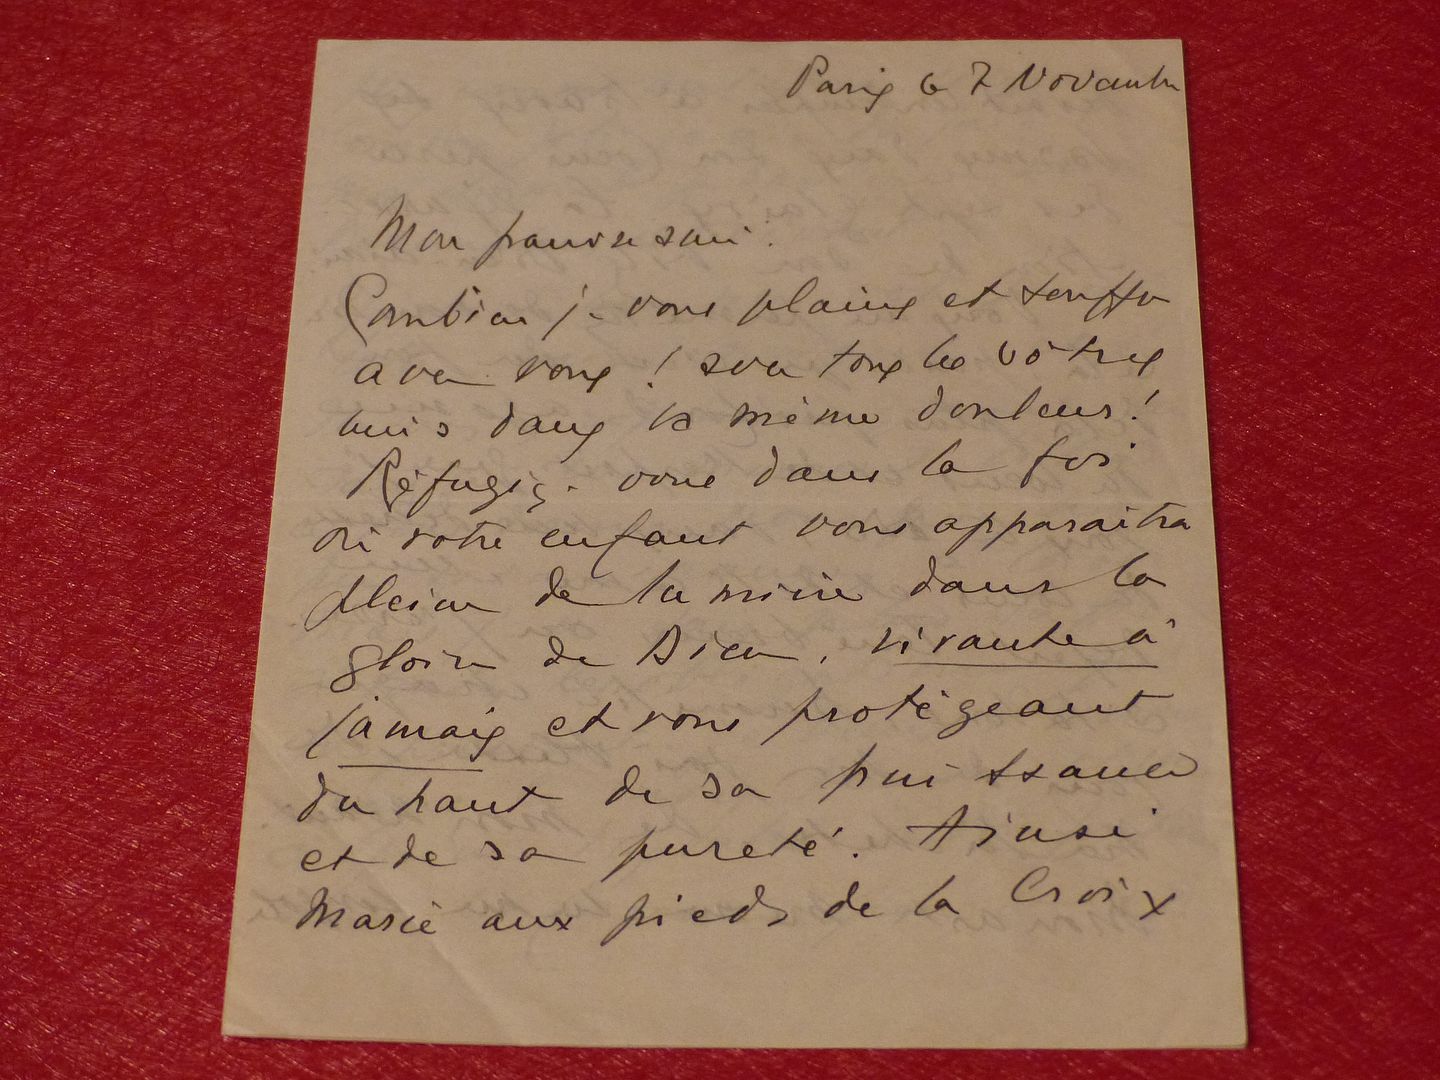 Paris le 7 Novembre
Mon pauvre ami.
Combien je vous plains et souffre
avec vous ! avec tous les vôtres
unis dans la même douleur !
Réfugiez-vous dans la foi
où votre enfant vous apparaitra
pleine de lumière dans la
gloire de Dieu, vivante à
jamais et vous protégeant
du haut de sa puissance
et de sa pureté. Ainsi
Marie aux pieds de la Croix